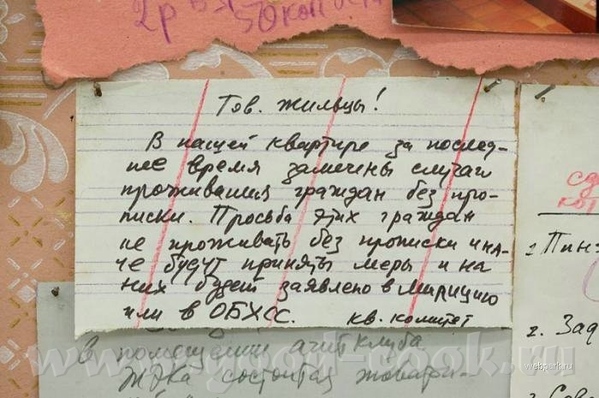 2р в
50 коп
Тов. жильцы!
В нашей квартире за послед-
нее время замечены случаи
проживания граждан без про-
писки. Просьба этих граждан
не проживать без прописки ина-
че будут приняты меры и на
них будет заявлено в милицию
или в ОБХСС. кв. комитет
в помещении агитклуба
ЖЭКа состоится
2. Зад